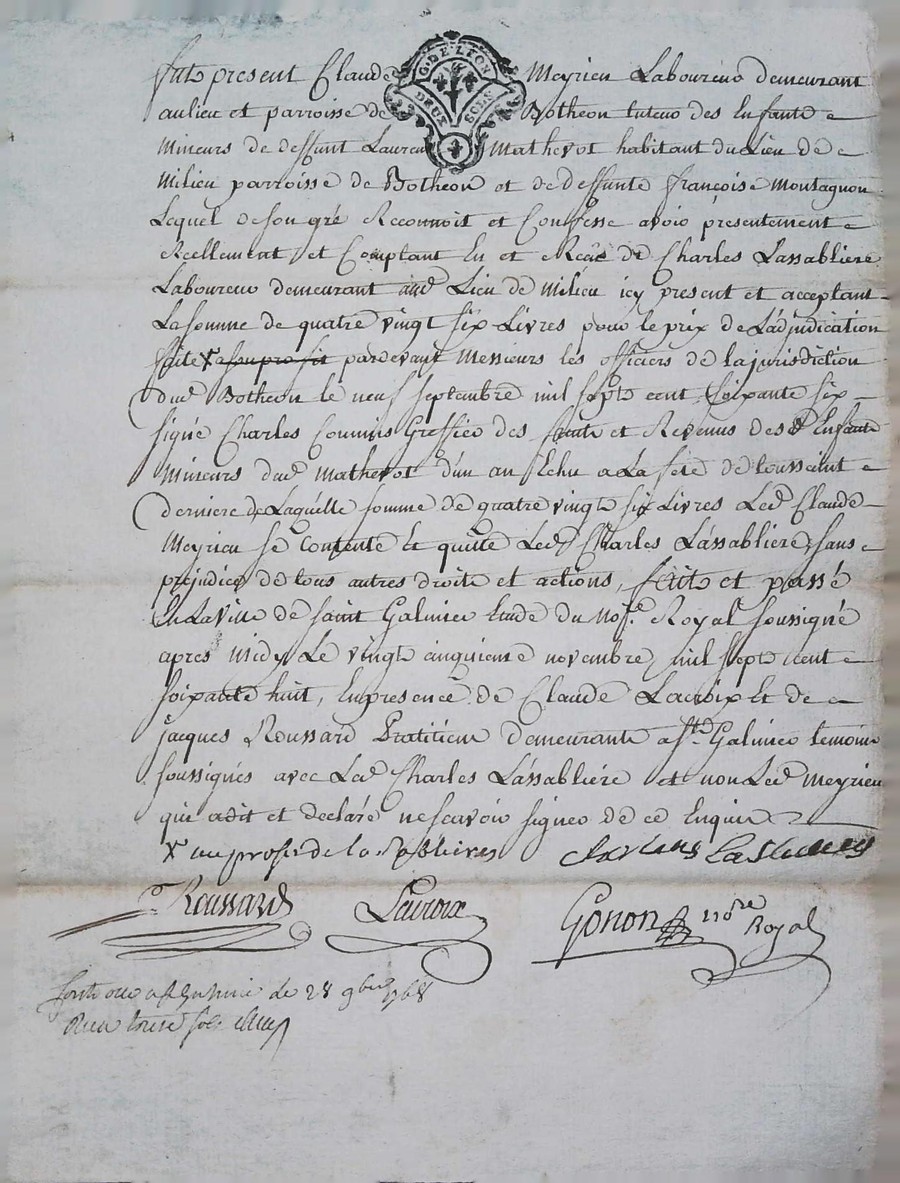 G. DE LYON
DEUX SOLS
fut present Claude Meyrieu Laboureur demeurant
au lieu et parroisse de Botheon tuteur des Enfants
mineurs de deffunt Laurent Mathevot habitant du Lieu de
milieu parroisse de Botheon et de deffunte francoise Montagnon
Lequel de son gré Reconnoit et Confesse avoir presentement
Reellement et Comptant Eu et Receu de Charles Lassabliere
Laboureur demeurant aud Lieu de milieu icy present et acceptant
La somme de quatre vingt six Livres pour le prix de Ladjudication
faite X a son profit pardevant Messieurs les officiers de la jurisdiction
dud Botheon le neuf septembre mil sept cent soixante six
signé Charles Commis Greffier des fruits et Revenus des d Enfants
mineurs dud Mathevot d'un an Echu a La fete de toussaint
derniere de Laquelle somme de quatre vingt six Livres Led Claude
Meyrieu se contente Et quitte Led Charles Lassabliere, sans
prejudice de tous autres droits et actions, faits et passé
En La ville de saint Galmier Etude du Not.e Royal soussigné
apres midy Le vingt cinquieme novembre mil sept cent
soixante huit, En presence de Claude Lacroix Et de
jacques Roussard Pratitiens demeurants a St Galmier temoins
soussignés avec Led Charles Lassabliére et non Led Meyrieu
qui a dit et declaré ne scavoir signer de ce Enquis
X au profit de la Sabliere
Charles Lasabliere
Roussard Lacroix Gonon nore Royal
de 28 9bre 1768
Reçu treize sols